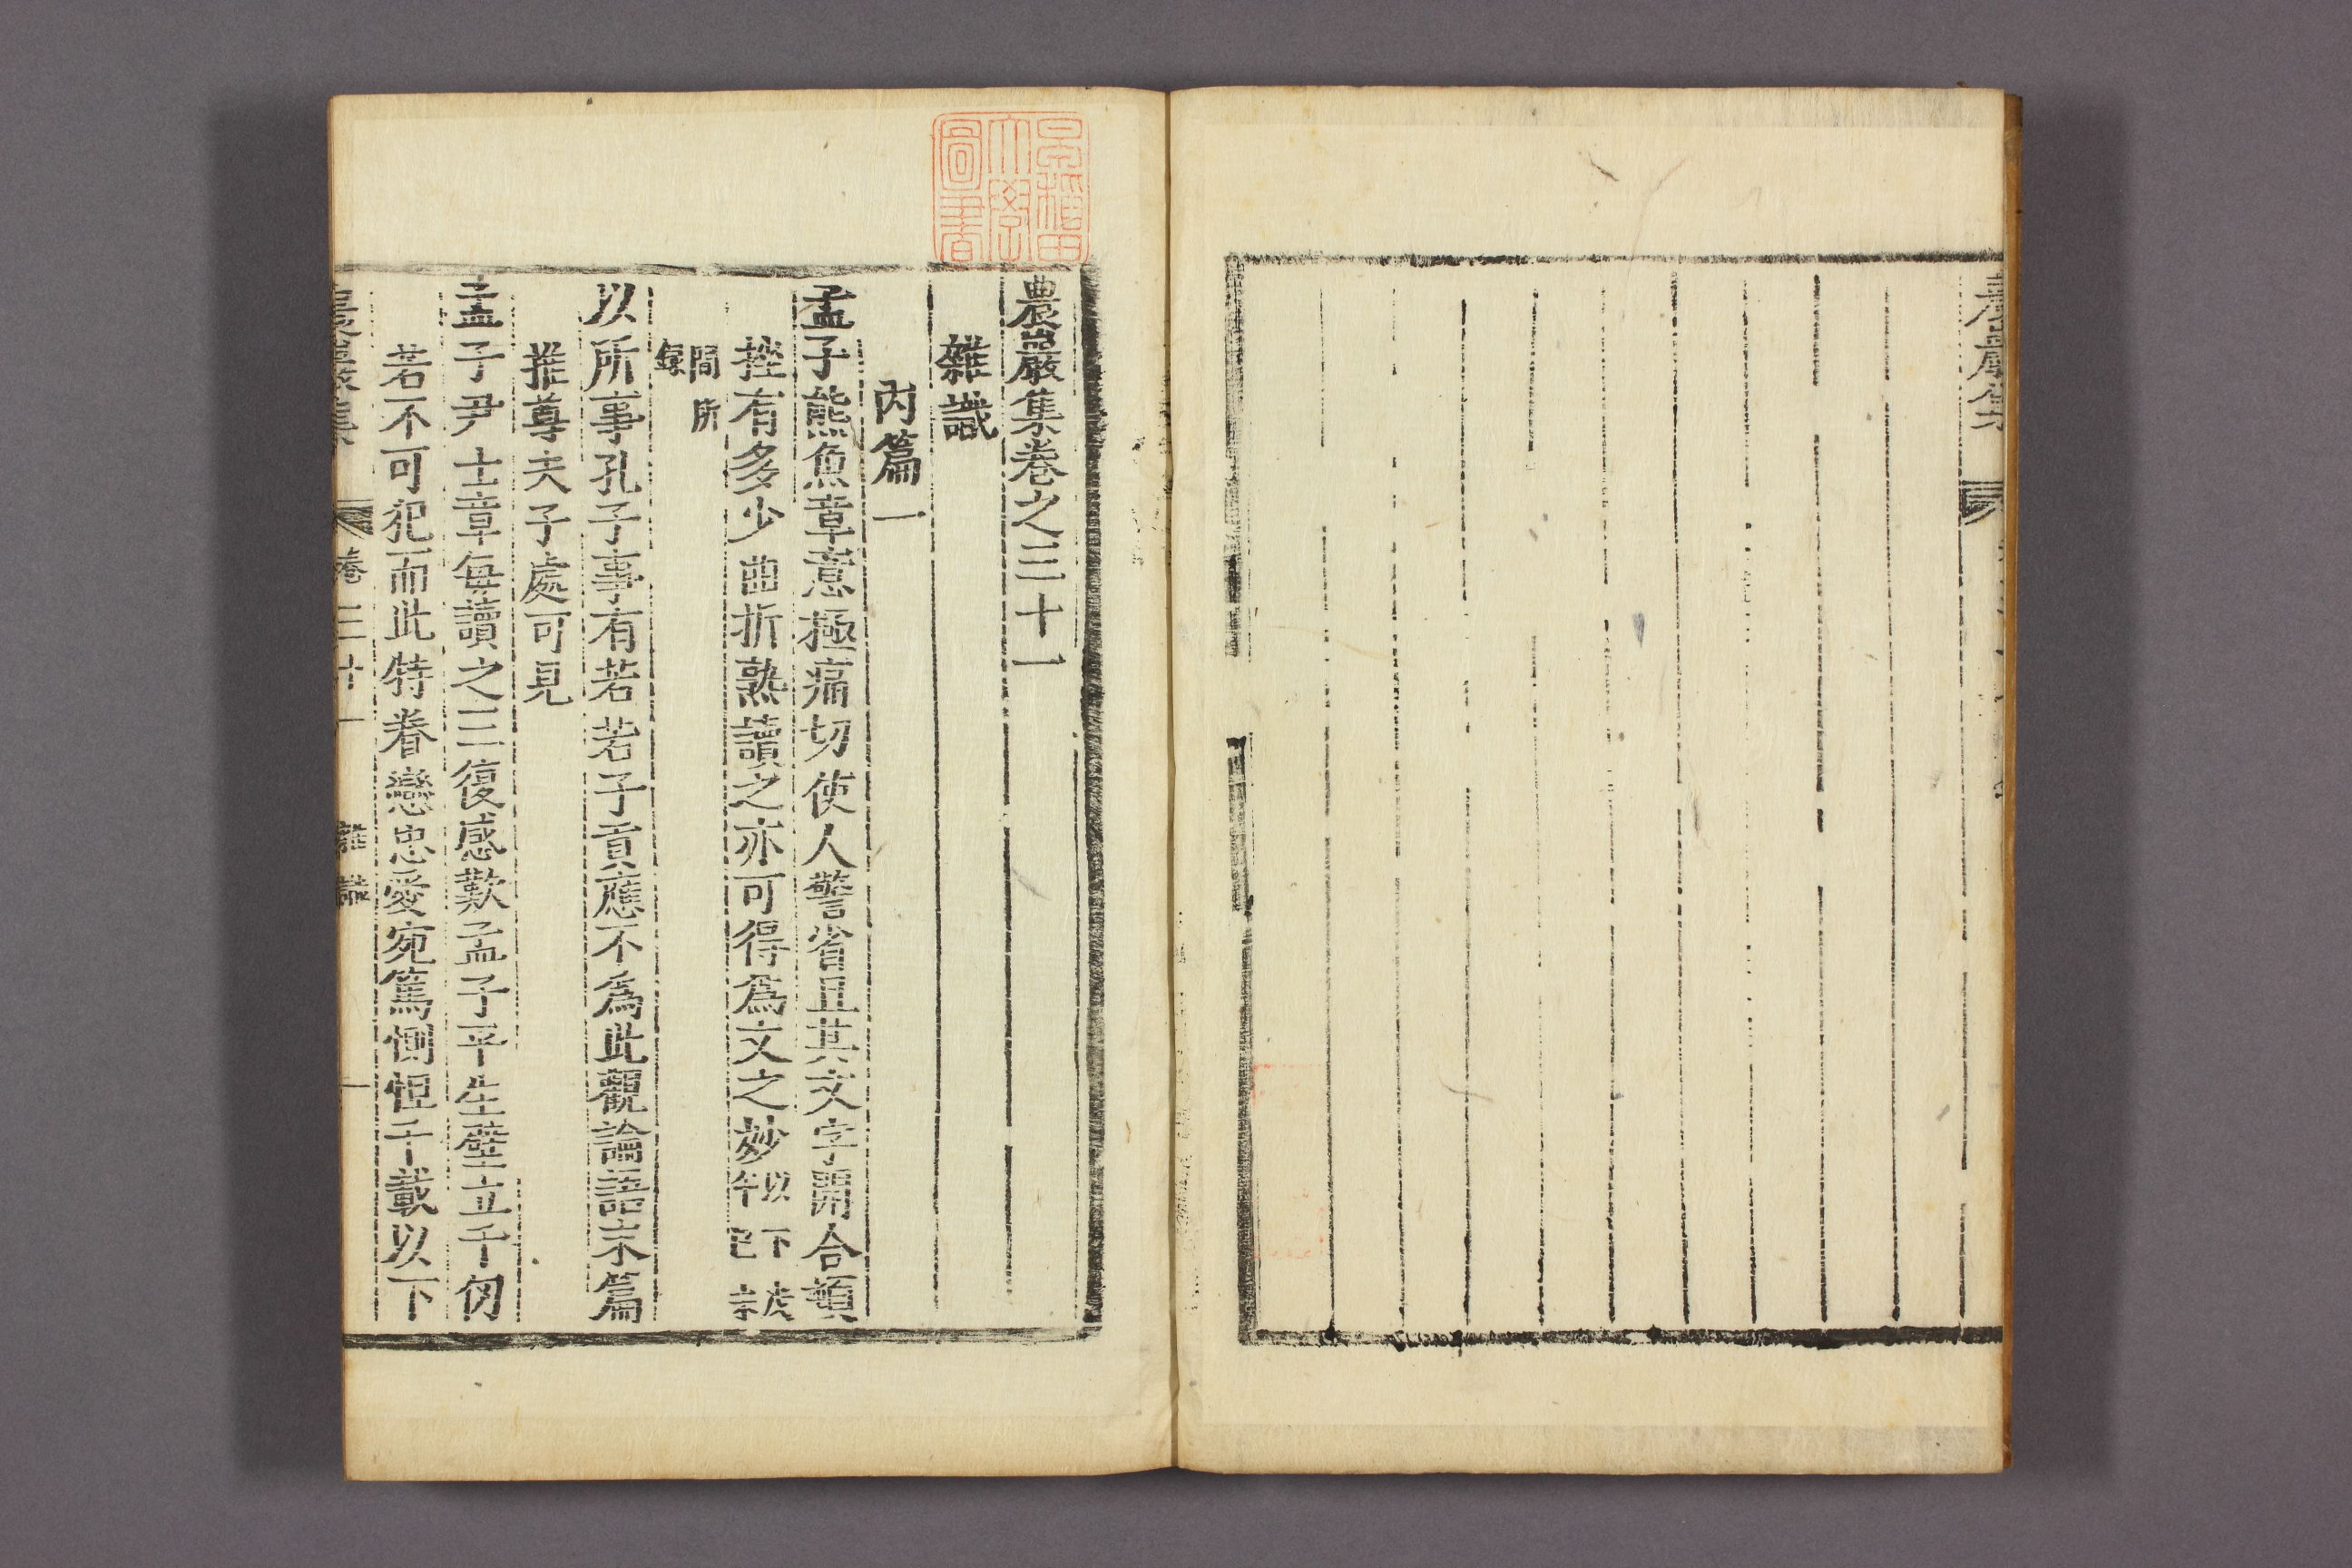 早稻田
大學
圖書
農巖集
農巖集卷之三十一
雜識
內篇一
孟子熊魚章意極痛切使人警省且其文字開合頓
挫有多少曲折熟讀之亦可得爲文之妙以下戊午己未
間所錄
以所事孔子事有若若子貢應不爲此觀論語末篇
推尊夫子處可見
孟子尹士章每讀之三復感歎孟子平生壁立千仞
若不可犯而此特眷戀忠愛宛篤惻怛千載以下
農巖集 卷三十一 雜識 一